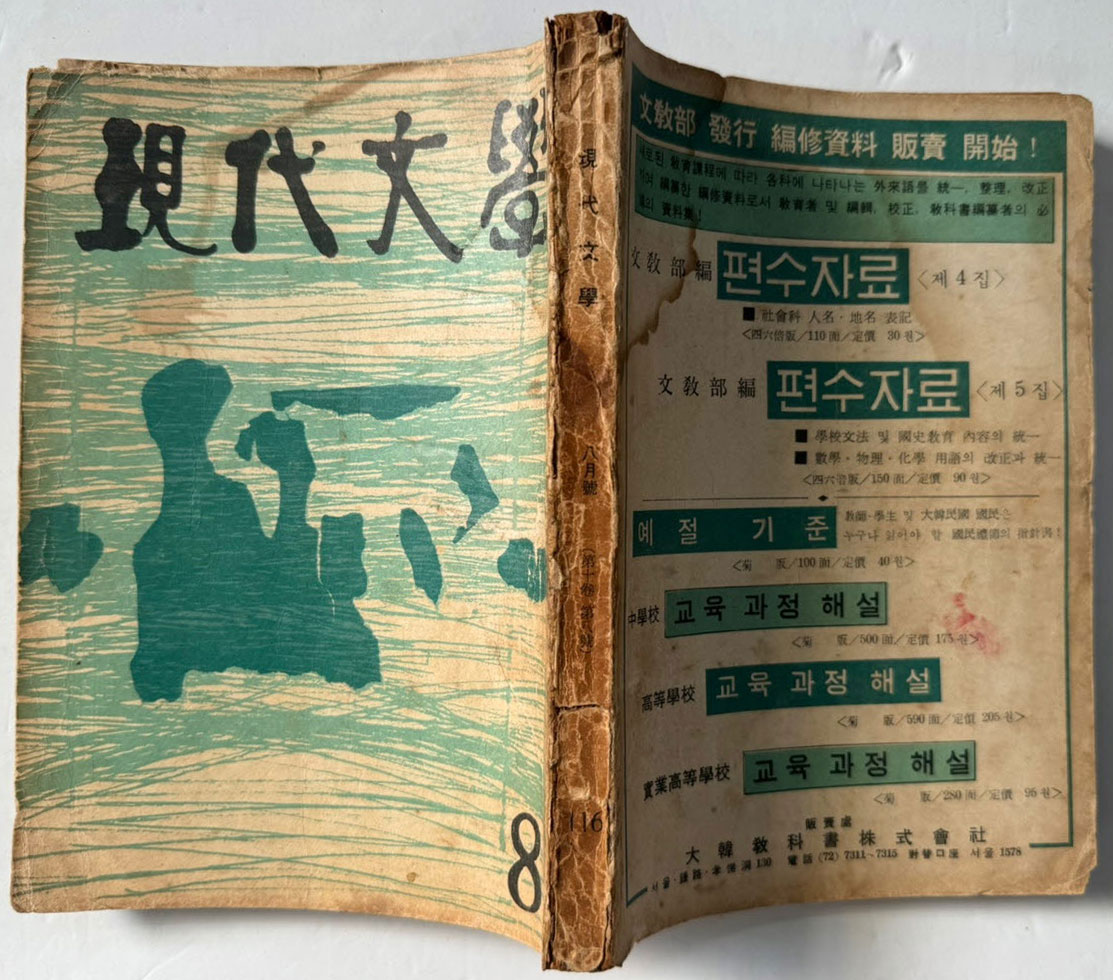 現代文學
8
現代文學
八月號
116
文敎部 發行 編修資料 販賣 開始!
새로된 敎育課程에 따라 各科에 나타나는 外來語를 統一, 整理, 改正
하여 編纂한 編修資料로서 敎育者 및 編輯, 校正, 敎科書編纂者의 必
資料集!
文敎部編 편수자료 <제4집>
■ 社會科 人名·地名 表記
<四六倍版/110面/定價 30원>
文敎部編 편수자료 <제5집>
■ 學校文法 및 國史敎育 內容의 統一
■ 數學·物理·化學 用語의 改正과 統一
<四六倍版/150面/定價 90원>
예절 기준
敎師·學生 및 大韓民國 國民은
누구나 읽어야 할 國民禮節의 指針書!
<菊 版/100面/定價 40원>
中學校 교육 과정 해설
<菊 版/500面/定價 175원>
高等學校 교육 과정 해설
<菊 版/590面/定價 205원>
實業高等學校 교육 과정 해설
<菊 版/280面/定價 95원>
販賣處
大韓敎科書株式會社
130 電話 (72) 7311~7315 對替口座 서울 1578